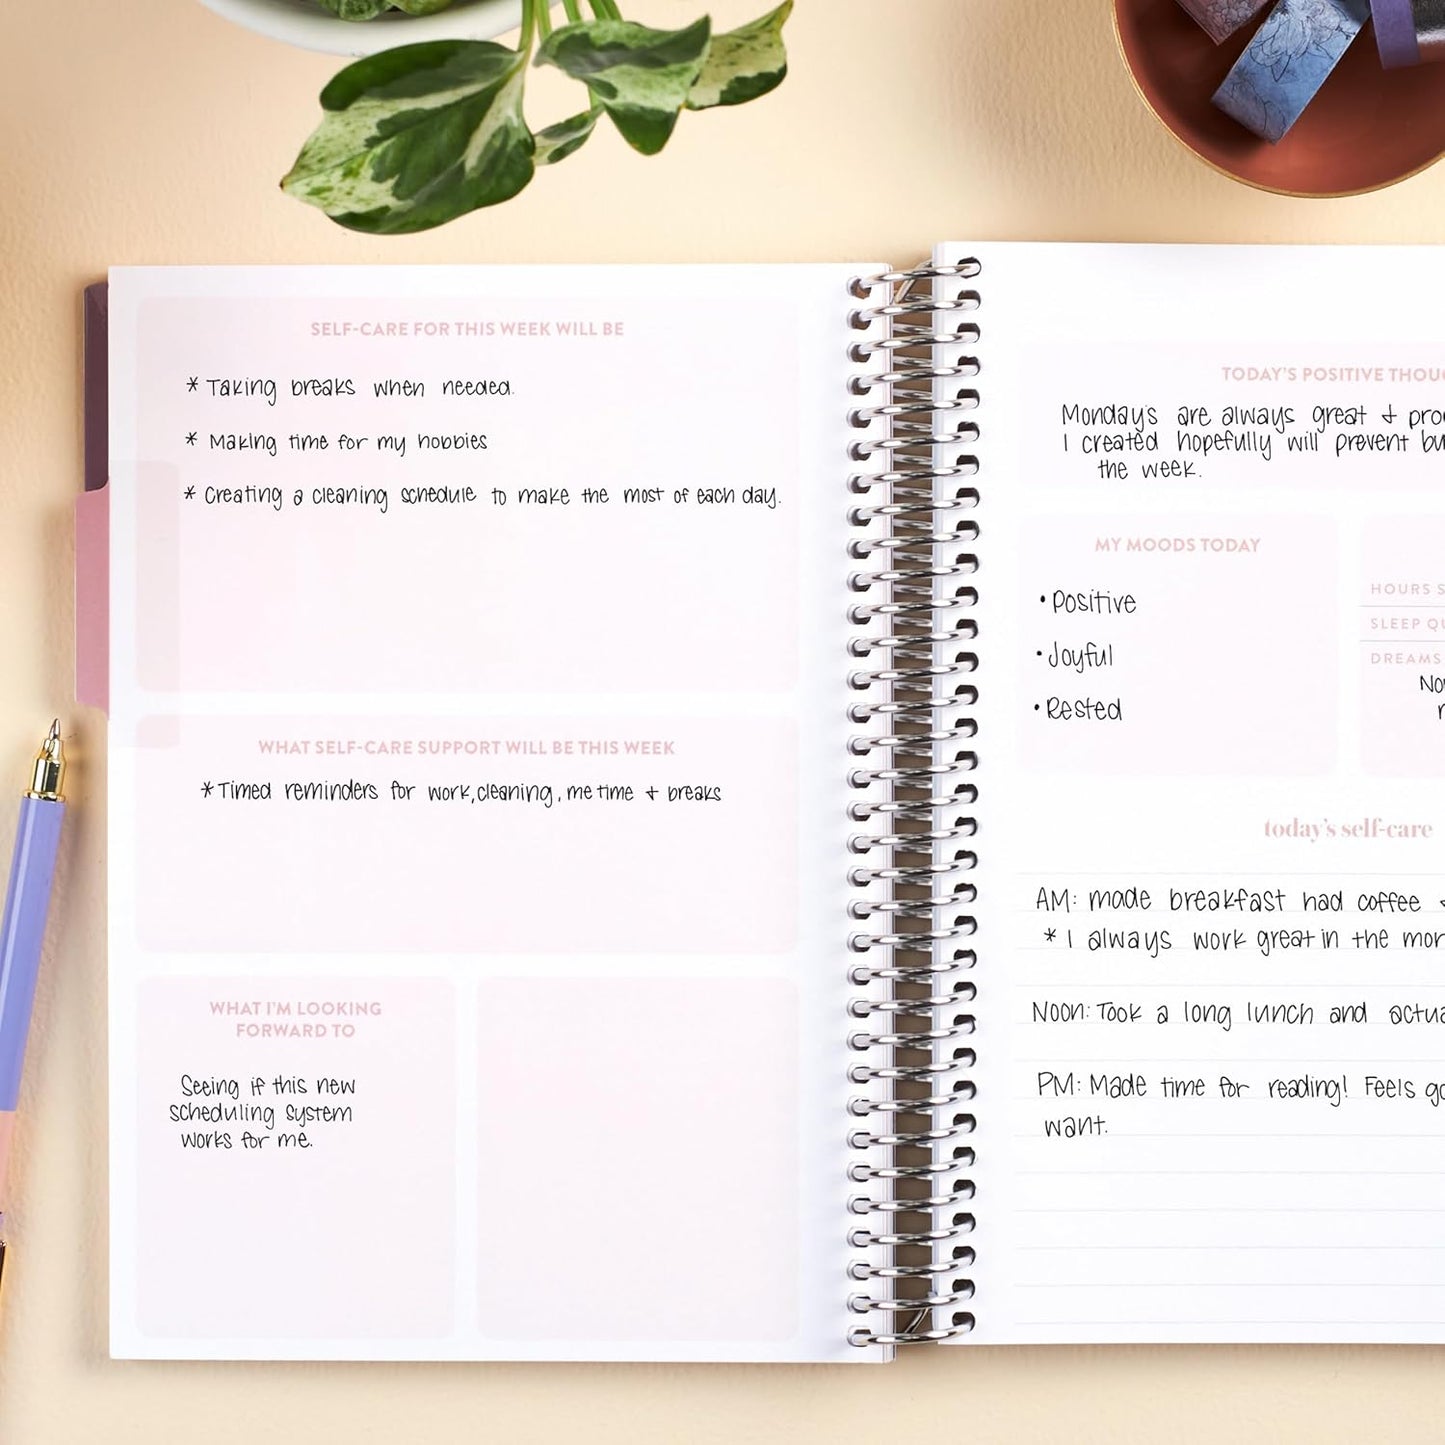 SELF-CARE FOR THIS WEEK WILL BE
* Taking breaks when needed.
* Making time for my hobbies
* Creating a cleaning schedule to make the most of each day.
WHAT SELF-CARE SUPPORT WILL BE THIS WEEK
* Timed reminders for work, cleaning, me time + breaks
WHAT I'M LOOKING
FORWARD TO
Seeing if this new
scheduling system
works for me.
TODAY'S POSITIVE
Monday's are always great +
I created hopefully will prevent
the week.
MY MOODS TODAY
• Positive
• Joyful
• Rested
HOURS
SLEEP
DREAMS
today's self-care
AM: made breakfast had coffee
* I always work great in the
Noon: Took a long lunch and
PM: Made time for reading! Feels
want.